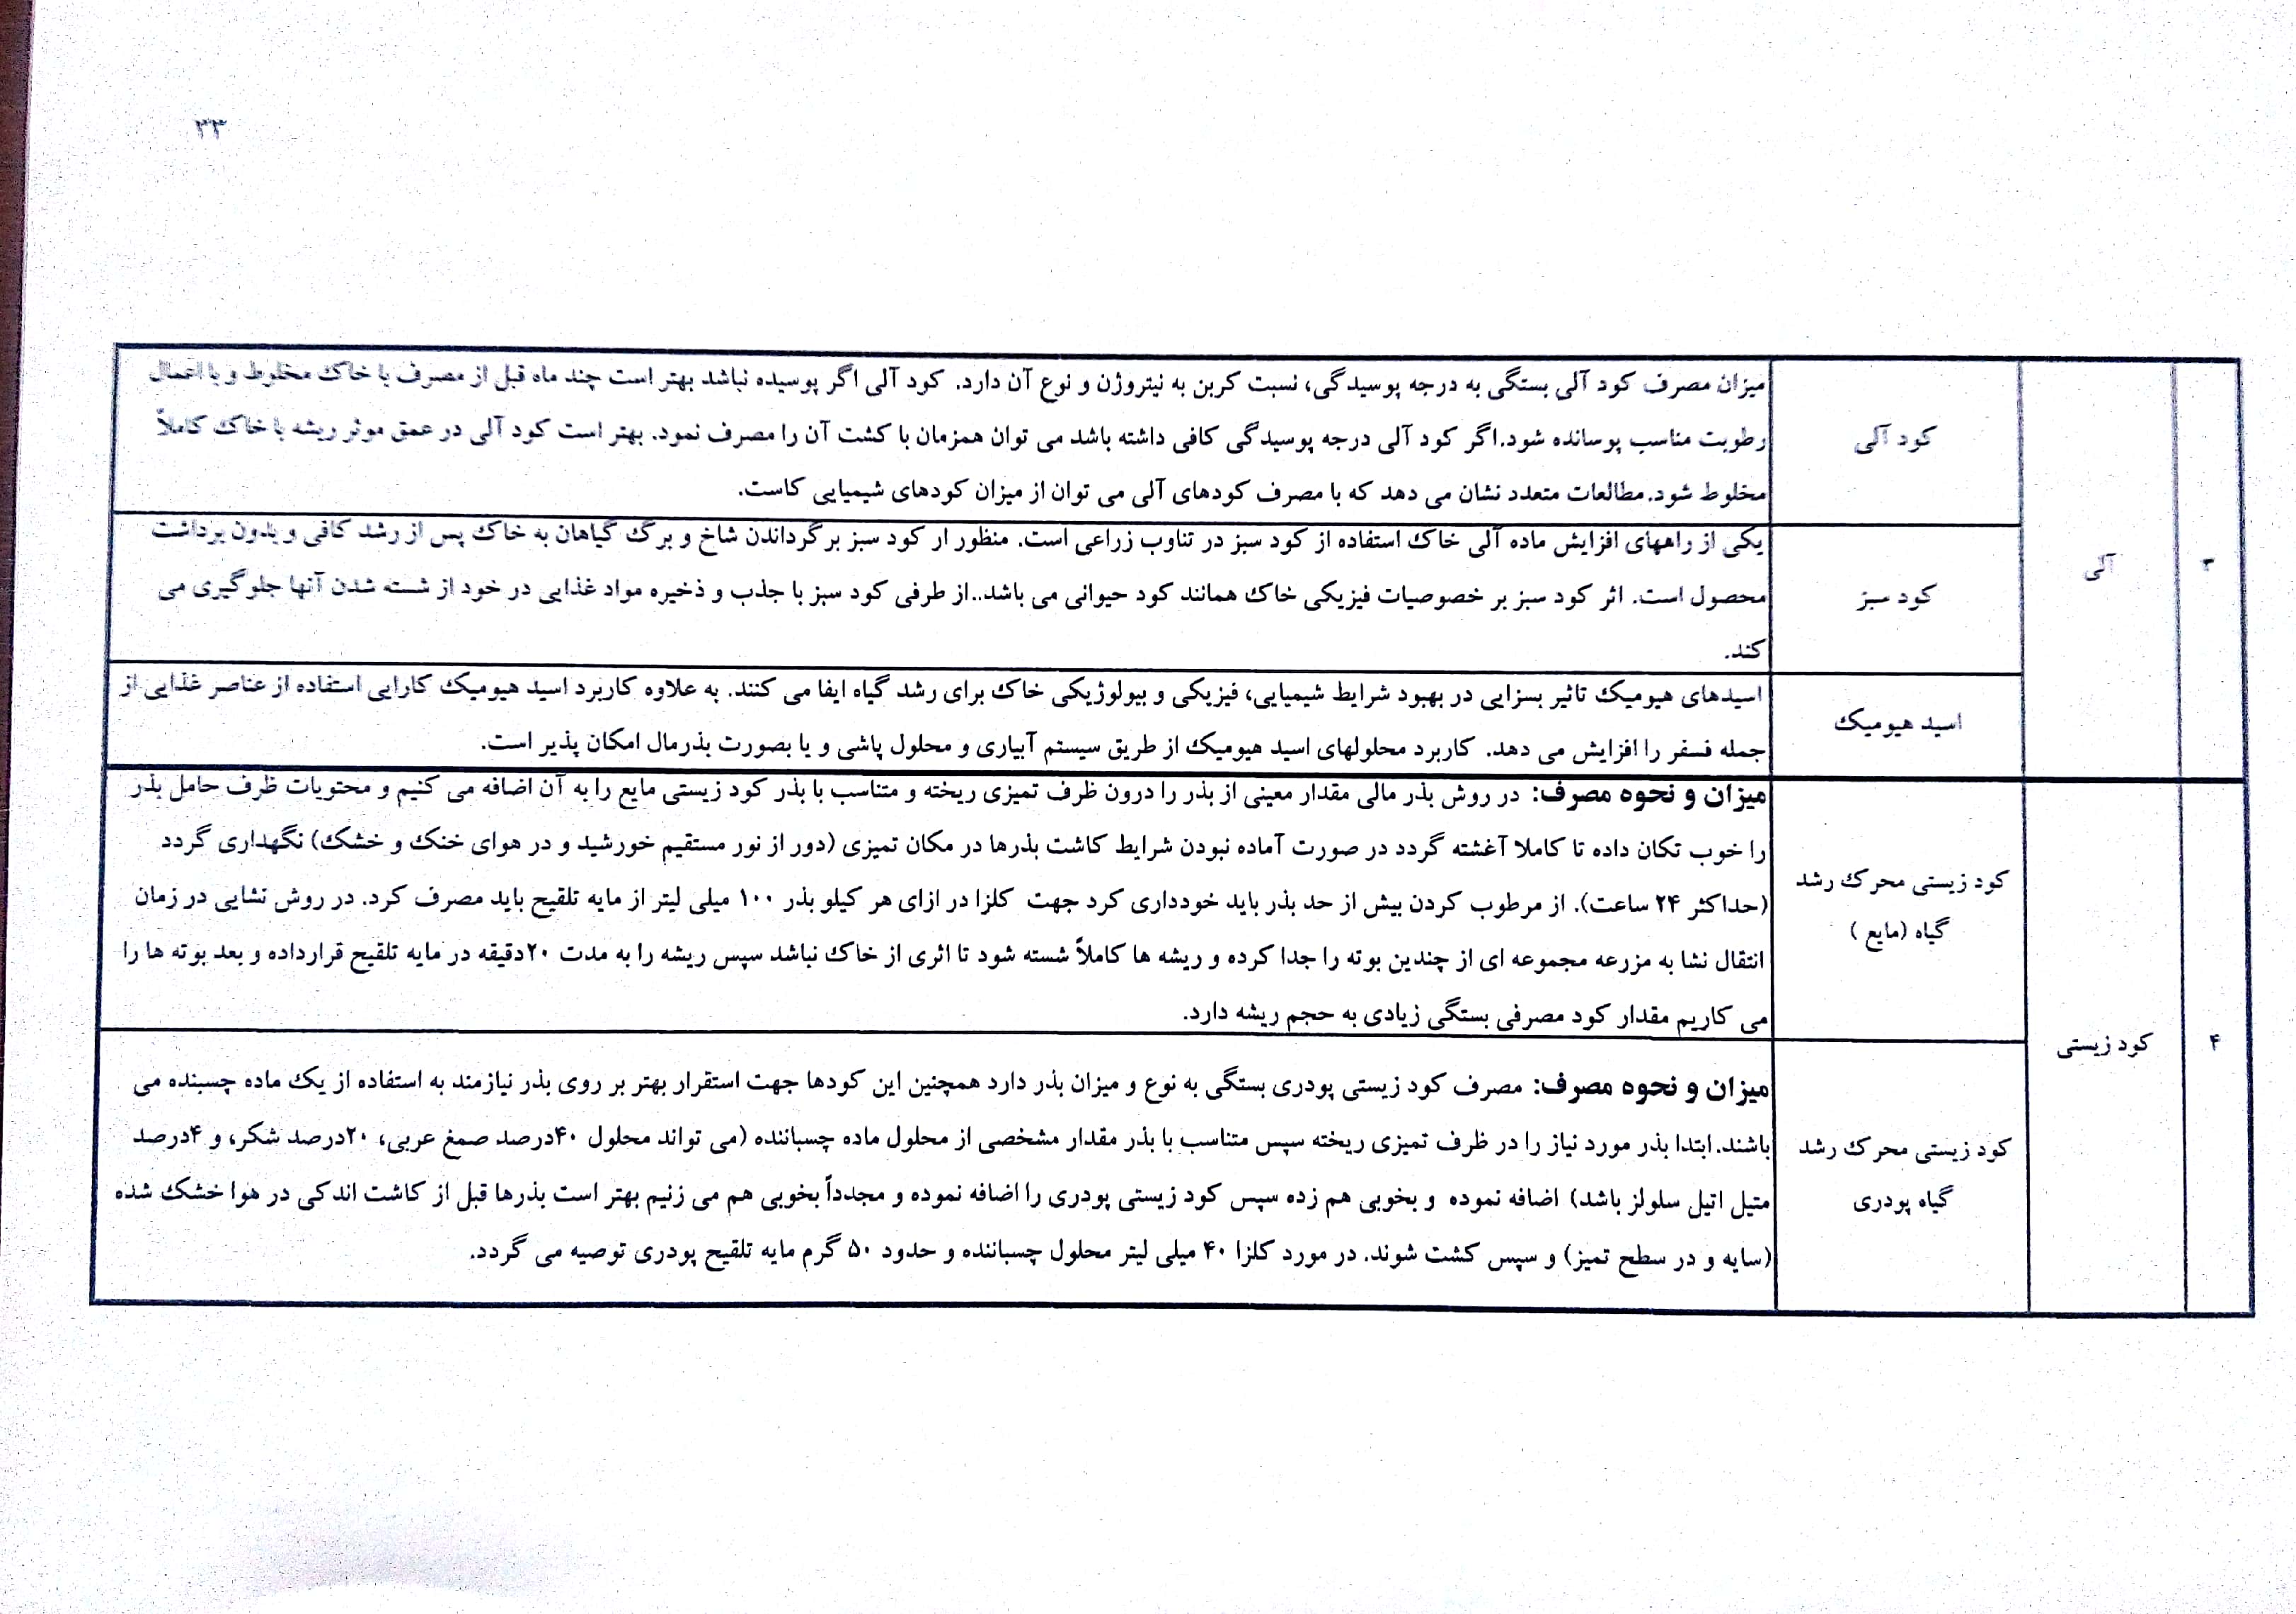 ۳۳
۳
آلی
کود آلی
میزان مصرف کود آلی بستگی به درجه پوسیدگی، نسبت کربن به نیتروژن و نوع آن دارد. کود آلی اگر پوسیده نباشد بهتر است چند ماه قبل از مصرف با خاک مخلوط و با اعمال
رطوبت مناسب پوسانده شود.اگر کود آلی درجه پوسیدگی کافی داشته باشد می توان همزمان با کشت آن را مصرف نمود. بهتر است کود آلی در عمق موثر ریشه با خاک کاملاً
مخلوط شود.مطالعات متعدد نشان می دهد که با مصرف کودهای آلی می توان از میزان کودهای شیمیایی کاست.
کود سبز
یکی از راههای افزایش ماده آلی خاک استفاده از کود سبز در تناوب زراعی است. منظور ار کود سبز برگرداندن شاخ و برگ گیاهان به خاک پس از رشد کافی و بدون برداشت
محصول است. اثر کود سبز بر خصوصیات فیزیکی خاک همانند کود حیوانی می باشد..از طرفی کود سبز با جذب و ذخیره مواد غذایی در خود از شسته شدن آنها جلوگیری می
کند.
اسید هیومیک
اسیدهای هیومیک تاثیر بسزایی در بهبود شرایط شیمیایی، فیزیکی و بیولوژیکی خاک برای رشد گیاه ایفا می کنند. به علاوه کاربرد اسید هیومیک کارایی استفاده از عناصر غذایی از
جمله فسفر را افزایش می دهد. کاربرد محلولهای اسید هیومیک از طریق سیستم آبیاری و محلول پاشی و یا بصورت بذرمال امکان پذیر است.
۴
کود زیستی
کود زیستی محرک رشد
گیاه (مایع )
میزان و نحوه مصرف: در روش بذر مالی مقدار معینی از بذر را درون ظرف تمیزی ریخته و متناسب با بذر کود زیستی مایع را به آن اضافه می کنیم و محتویات ظرف حامل بذر
را خوب تکان داده تا کاملا آغشته گردد در صورت آماده نبودن شرایط کاشت بذرها در مکان تمیزی (دور از نور مستقیم خورشید و در هوای خنک و خشک) نگهداری گردد
(حداکثر ۲۴ ساعت). از مرطوب کردن بیش از حد بذر باید خودداری کرد جهت کلزا در ازای هر کیلو بذر ۱۰۰ میلی لیتر از مایه تلقیح باید مصرف کرد. در روش نشایی در زمان
انتقال نشا به مزرعه مجموعه ای از چندین بوته را جدا کرده و ریشه ها کاملاً شسته شود تا اثری از خاک نباشد سپس ریشه را به مدت ۲۰دقیقه در مایه تلقیح قرارداده و بعد بوته ها را
می کاریم مقدار کود مصرفی بستگی زیادی به حجم ریشه دارد.
کود زیستی محرک رشد
گیاه پودری
میزان و نحوه مصرف: مصرف کود زیستی پودری بستگی به نوع و میزان بذر دارد همچنین این کودها جهت استقرار بهتر بر روی بذر نیازمند به استفاده از یک ماده چسبنده می
باشند.ابتدا بذر مورد نیاز را در ظرف تمیزی ریخته سپس متناسب با بذر مقدار مشخصی از محلول ماده چسباننده (می تواند محلول ۴۰درصد صمغ عربی، ۲۰درصد شکر، و ۴درصد
متیل اتیل سلولز باشد) اضافه نموده و بخوبی هم زده سپس کود زیستی پودری را اضافه نموده و مجدداً بخوبی هم می زنیم بهتر است بذرها قبل از کاشت اندکی در هوا خشک شده
(سایه و در سطح تمیز) و سپس کشت شوند. در مورد کلزا ۴۰ میلی لیتر محلول چسباننده و حدود ۵۰ گرم مایه تلقیح پودری توصیه می گردد.